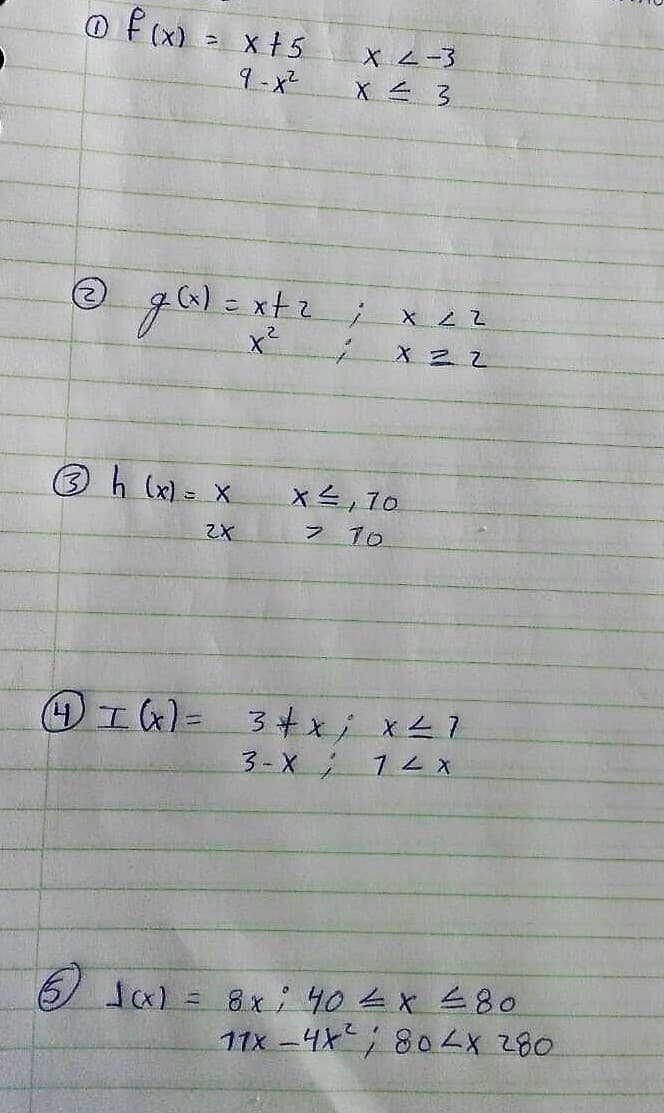 ① f(x) = x+5 x < -3
9-x² x ≤ 3
② g(x) = x+2 ; x < 2
x² ; x = 2
③ h (x) = x x ≤, 10
2x > 10
④ I (x) = 3 + x ; x ≤ 1
3 - x ; 1 < x
⑤ J(x) = 8x ; 40 ≤ x ≤ 80
11x - 4x² ; 80 < x 280